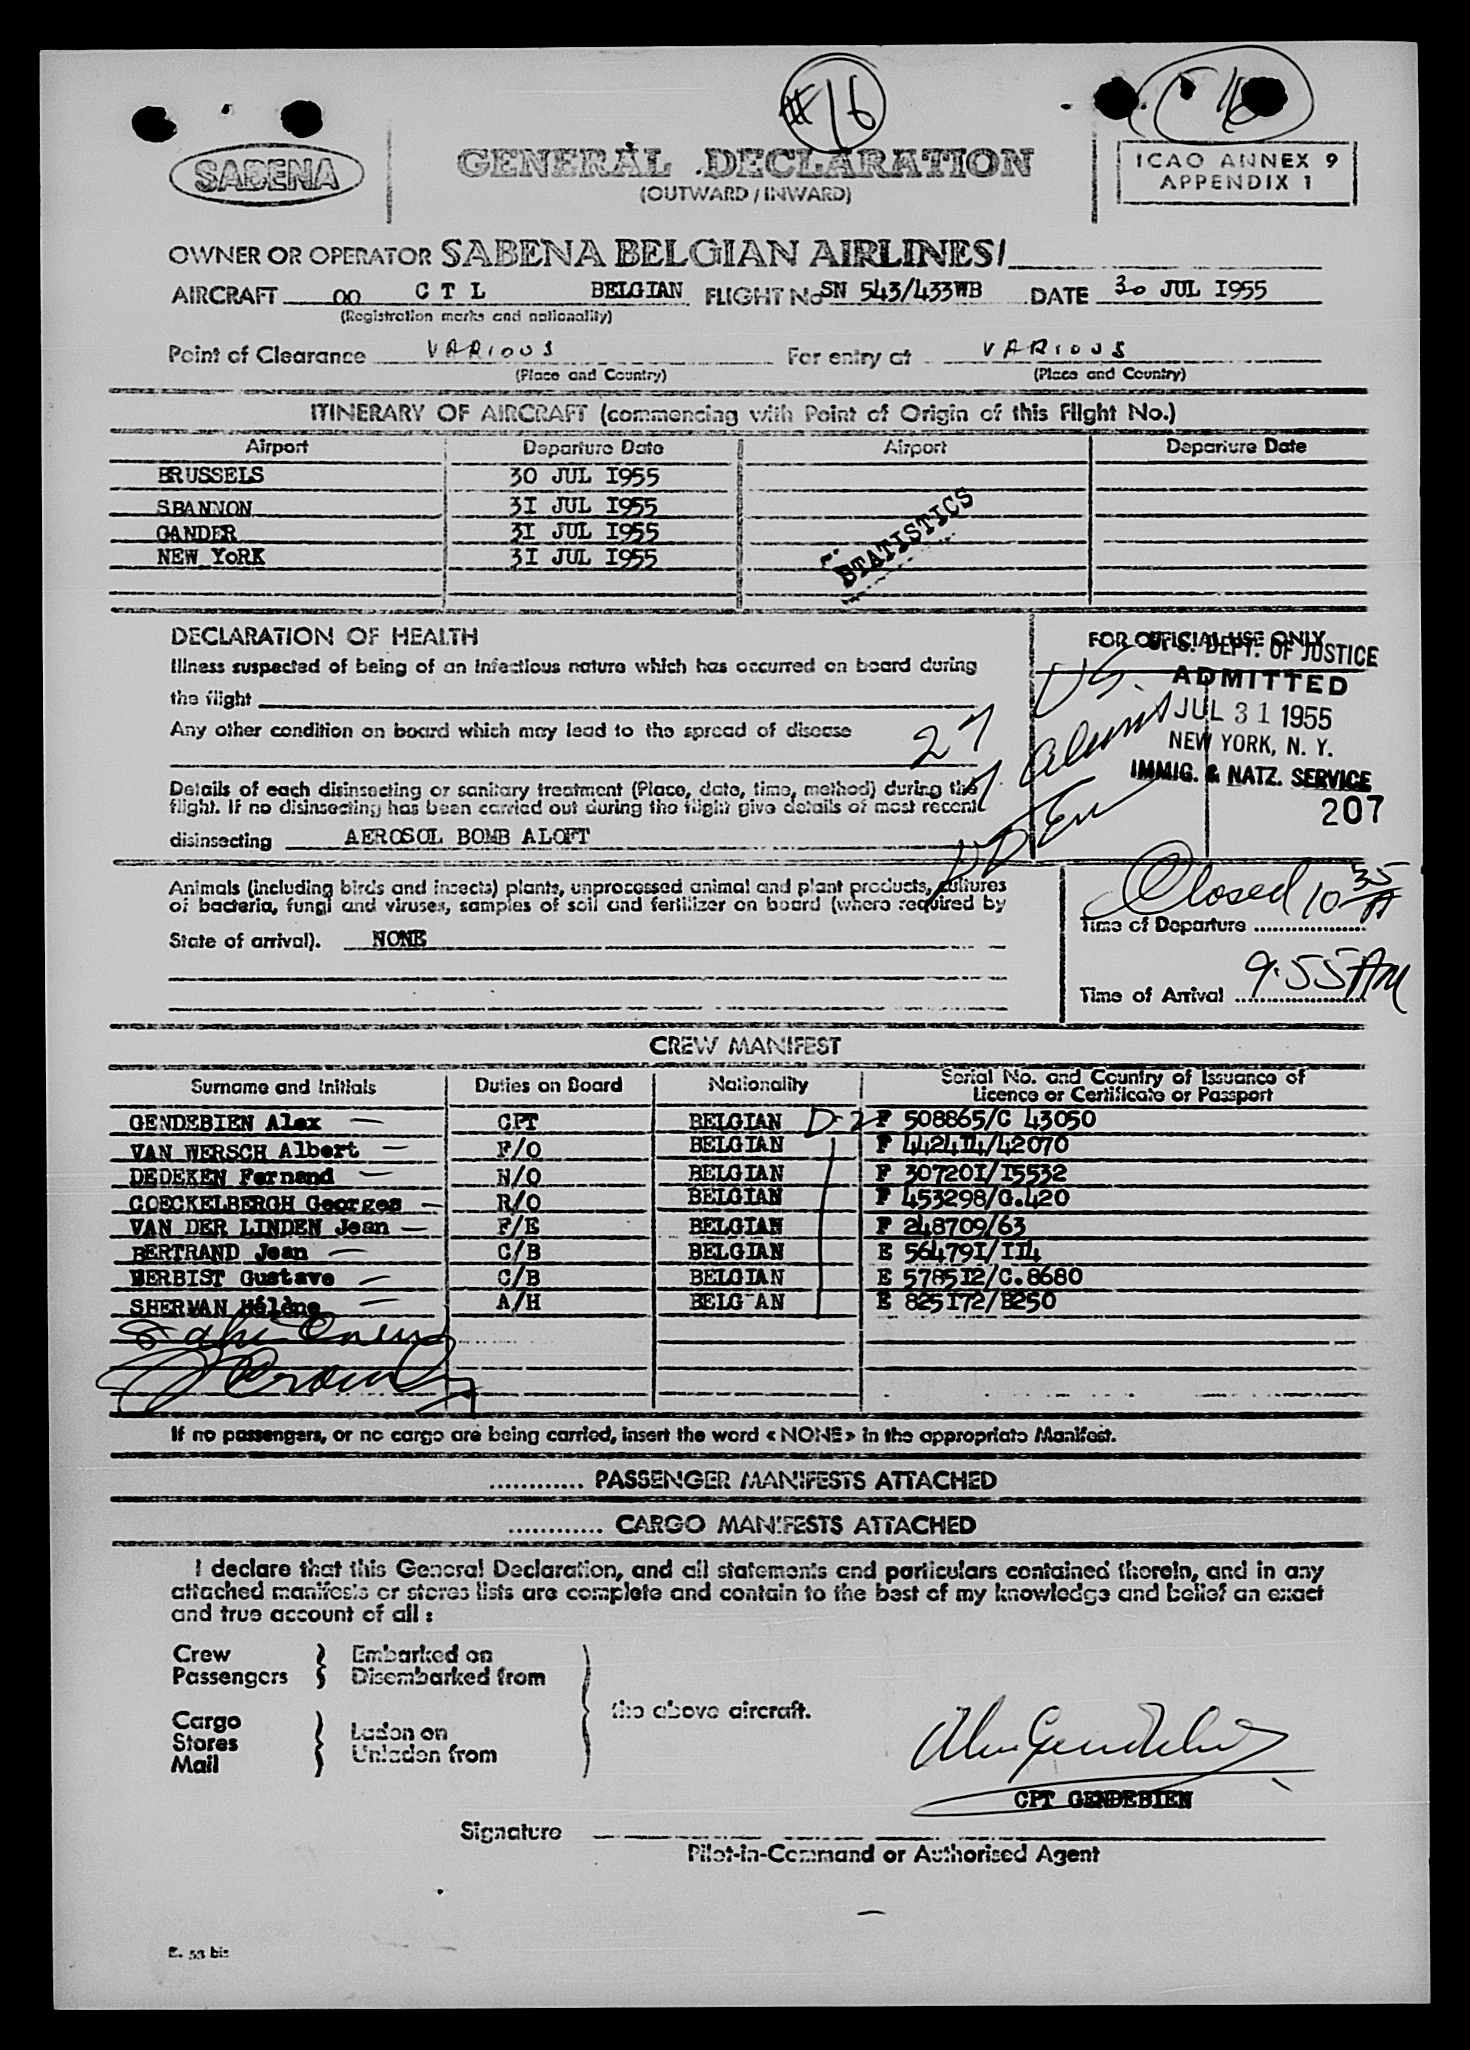 #16
16
SABENA
GENERAL DECLARATION
(OUTWARD / INWARD)
ICAO ANNEX 9
APPENDIX 1
OWNER OR OPERATOR SABENA BELGIAN AIRLINES/
AIRCRAFT OO C T L BELGIAN FLIGHT No SN 543/433WB DATE 30 JUL I955
(Registration marks and nationality)
Point of Clearance VARIOUS For entry at VARIOUS
(Place and Country) (Place and Country)
ITINERARY OF AIRCRAFT (commencing with Point of Origin of this Flight No.)
Airport Departure Date Airport Departure Date
BRUSSELS 30 JUL I955
SHANNON 3I JUL I955
GANDER 3I JUL I955
NEW YoRK 3I JUL I955
STATISTICS
DECLARATION OF HEALTH
Illness suspected of being of an infectious nature which has occurred on board during
the flight
Any other condition on board which may lead to the spread of disease
Details of each disinsecting or sanitary treatment (Place, date, time, method) during the
flight. If no disinsecting has been carried out during the flight give details of most recent
disinsecting AEROSOL BOMB ALOFT
FOR OFFICIAL USE ONLY
U. S. DEPT. OF JUSTICE
ADMITTED
JUL 31 1955
NEW YORK, N. Y.
IMMIG. & NATZ. SERVICE
207
27 US.
7 Aliens
Animals (including birds and insects) plants, unprocessed animal and plant products, cultures
of bacteria, fungi and viruses, samples of soil and fertilizer on board (where required by
State of arrival). NONE
Closed 10 35 A
Time of Departure
9.55 AM
Time of Arrival
CREW MANIFEST
Surname and Initials Duties on Board Nationality Serial No. and Country of Issuance of
Licence or Certificate or Passport
GENDEBIEN Alex CPT BELGIAN D-2 F 508865/C 43050
VAN WERSCH Albert F/O BELGIAN F 4424I4/42070
DEDEKEN Fernand N/O BELGIAN F 30720I/I5532
COECKELBERGH Georges R/O BELGIAN F 453298/G.420
VAN DER LINDEN Jean F/E BELGIAN F 248709/63
BERTRAND Jean C/B BELGIAN E 56479I/II4
VERBIST Gustave C/B BELGIAN E 5785I2/C.8680
SHERMAN Hélène A/H BELG AN E 825I72/B250
If no passengers, or no cargo are being carried, insert the word « NONE » in the appropriate Manifest.
............ PASSENGER MANIFESTS ATTACHED
............ CARGO MANIFESTS ATTACHED
I declare that this General Declaration, and all statements and particulars contained therein, and in any
attached manifests or stores lists are complete and contain to the best of my knowledge and belief an exact
and true account of all :
Crew Embarked on
Passengers Disembarked from
the above aircraft.
Cargo
Stores Laden on
Mail Unladen from
Alex Gendebien
CPT GENDEBIEN
Signature
Pilot-in-Command or Authorised Agent
E. 53 bis